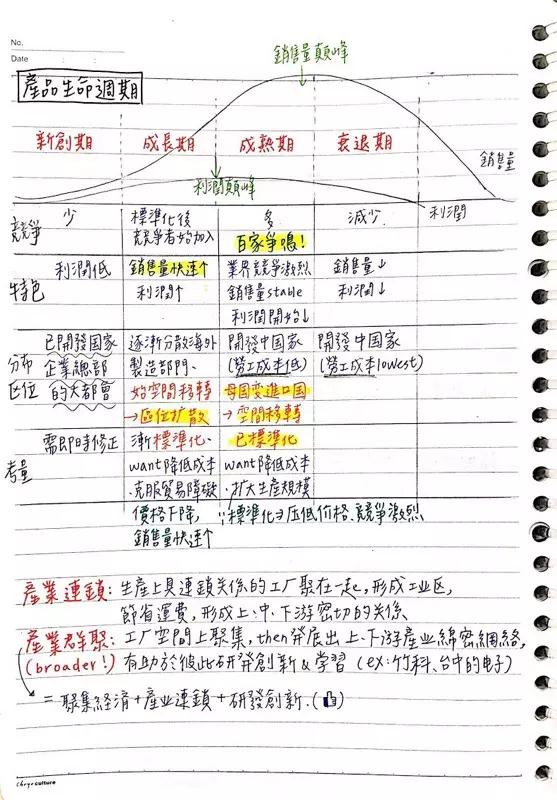 No.
Date
銷售量顛峰
產品生命週期
新創期 成長期 成熟期 衰退期
銷售量
利潤顛峰
利潤
競爭 少 標準化後 多 減少
競爭者始加入 百家爭鳴!
特色 利潤低 銷售量快速↑ 業界競爭激烈 銷售量↓
利潤↑ 銷售量stable 利潤↓
利潤開始↓
分布區位 已開發國家 逐漸分散海外 開發中國家 開發中国家
企業總部 製造部門、 (勞工成本低) (勞工成本lowest)
的大都會 始空間移轉 母国变進口国
→區位扩散 →空間移轉
考量 需即時修正 漸標準化、 已標準化
want降低成本 want降低成本
.克服貿易障礙 .扩大生產規模
價格下降, ∵標準化→压低价格、競爭激烈
銷售量快速↑
產業連鎖:生產上具連鎖关係的工厂聚在一起,形成工业区,
節省運費,形成上、中、下游密切的关係
產業群聚:工厂空間上聚集,then發展出上、下游產业綿密網絡,
(broader!) 有助於彼此研發創新&学習(ex:竹科、台中的电子)
=聚集經济+產业連鎖+研發創新.(👍)